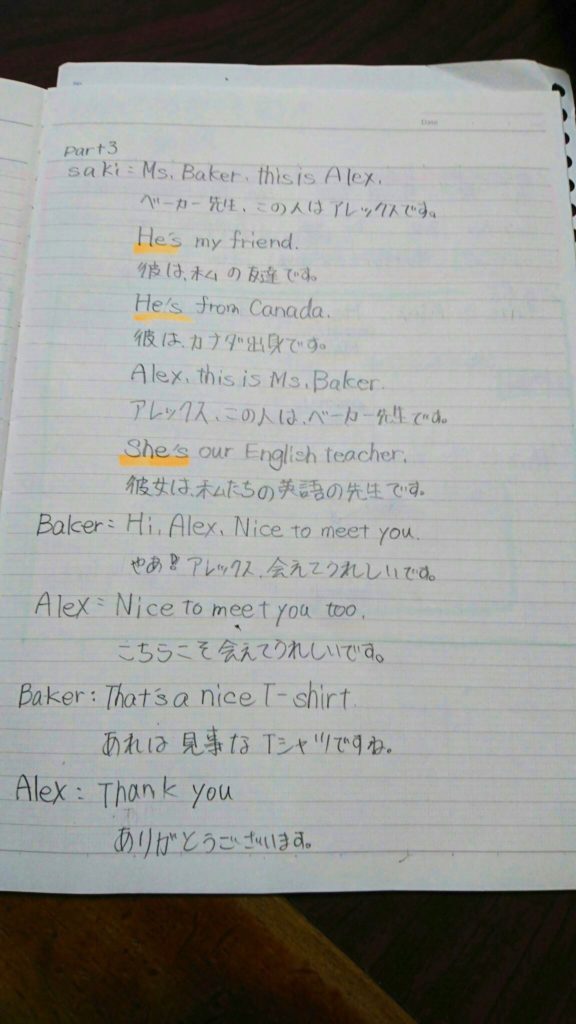 Date
part3
saki: Ms. Baker, this is Alex.
ベーカー先生、この人はアレックスです。
He's my friend.
彼は、私の友達です。
He's from Canada.
彼は、カナダ出身です。
Alex, this is Ms. Baker.
アレックス、この人は、ベーカー先生です。
She's our English teacher.
彼女は、私たちの英語の先生です。
Baker: Hi, Alex, Nice to meet you.
やあ!! アレックス、会えてうれしいです。
Alex: Nice to meet you too.
こちらこそ会えてうれしいです。
Baker: That's a nice T-shirt.
あれは見事なTシャツですね。
Alex: Thank you
ありがとうございます。